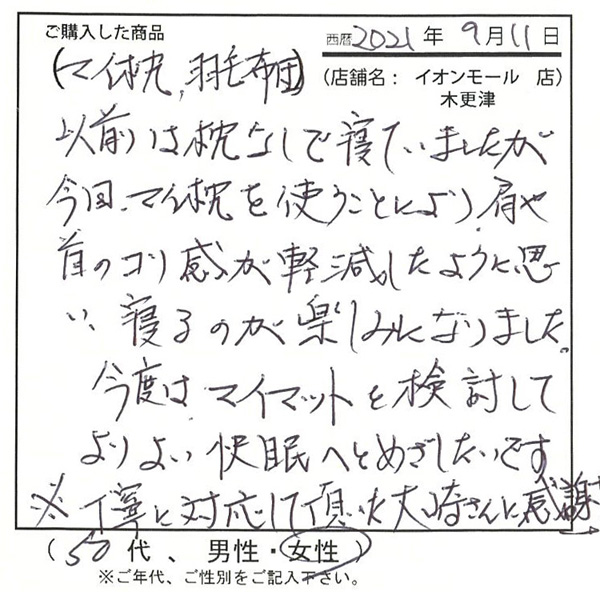 ご購入した商品
西暦 2021 年 9 月 11 日
(マイ枕、羽毛布団)
(店舗名: イオンモール 店)
木更津
以前は枕なしで寝ていましたが
今回、マイ枕を使うことにより肩や
首のコリ感が軽減したように思
い、寝るのが楽しみになりました。
今度はマイマットを検討して
よりよい快眠へとめざしたいです
※丁寧に対応して頂いた大崎さんに感謝
(50代、男性・女性)
※ご年代、ご性別をご記入下さい。